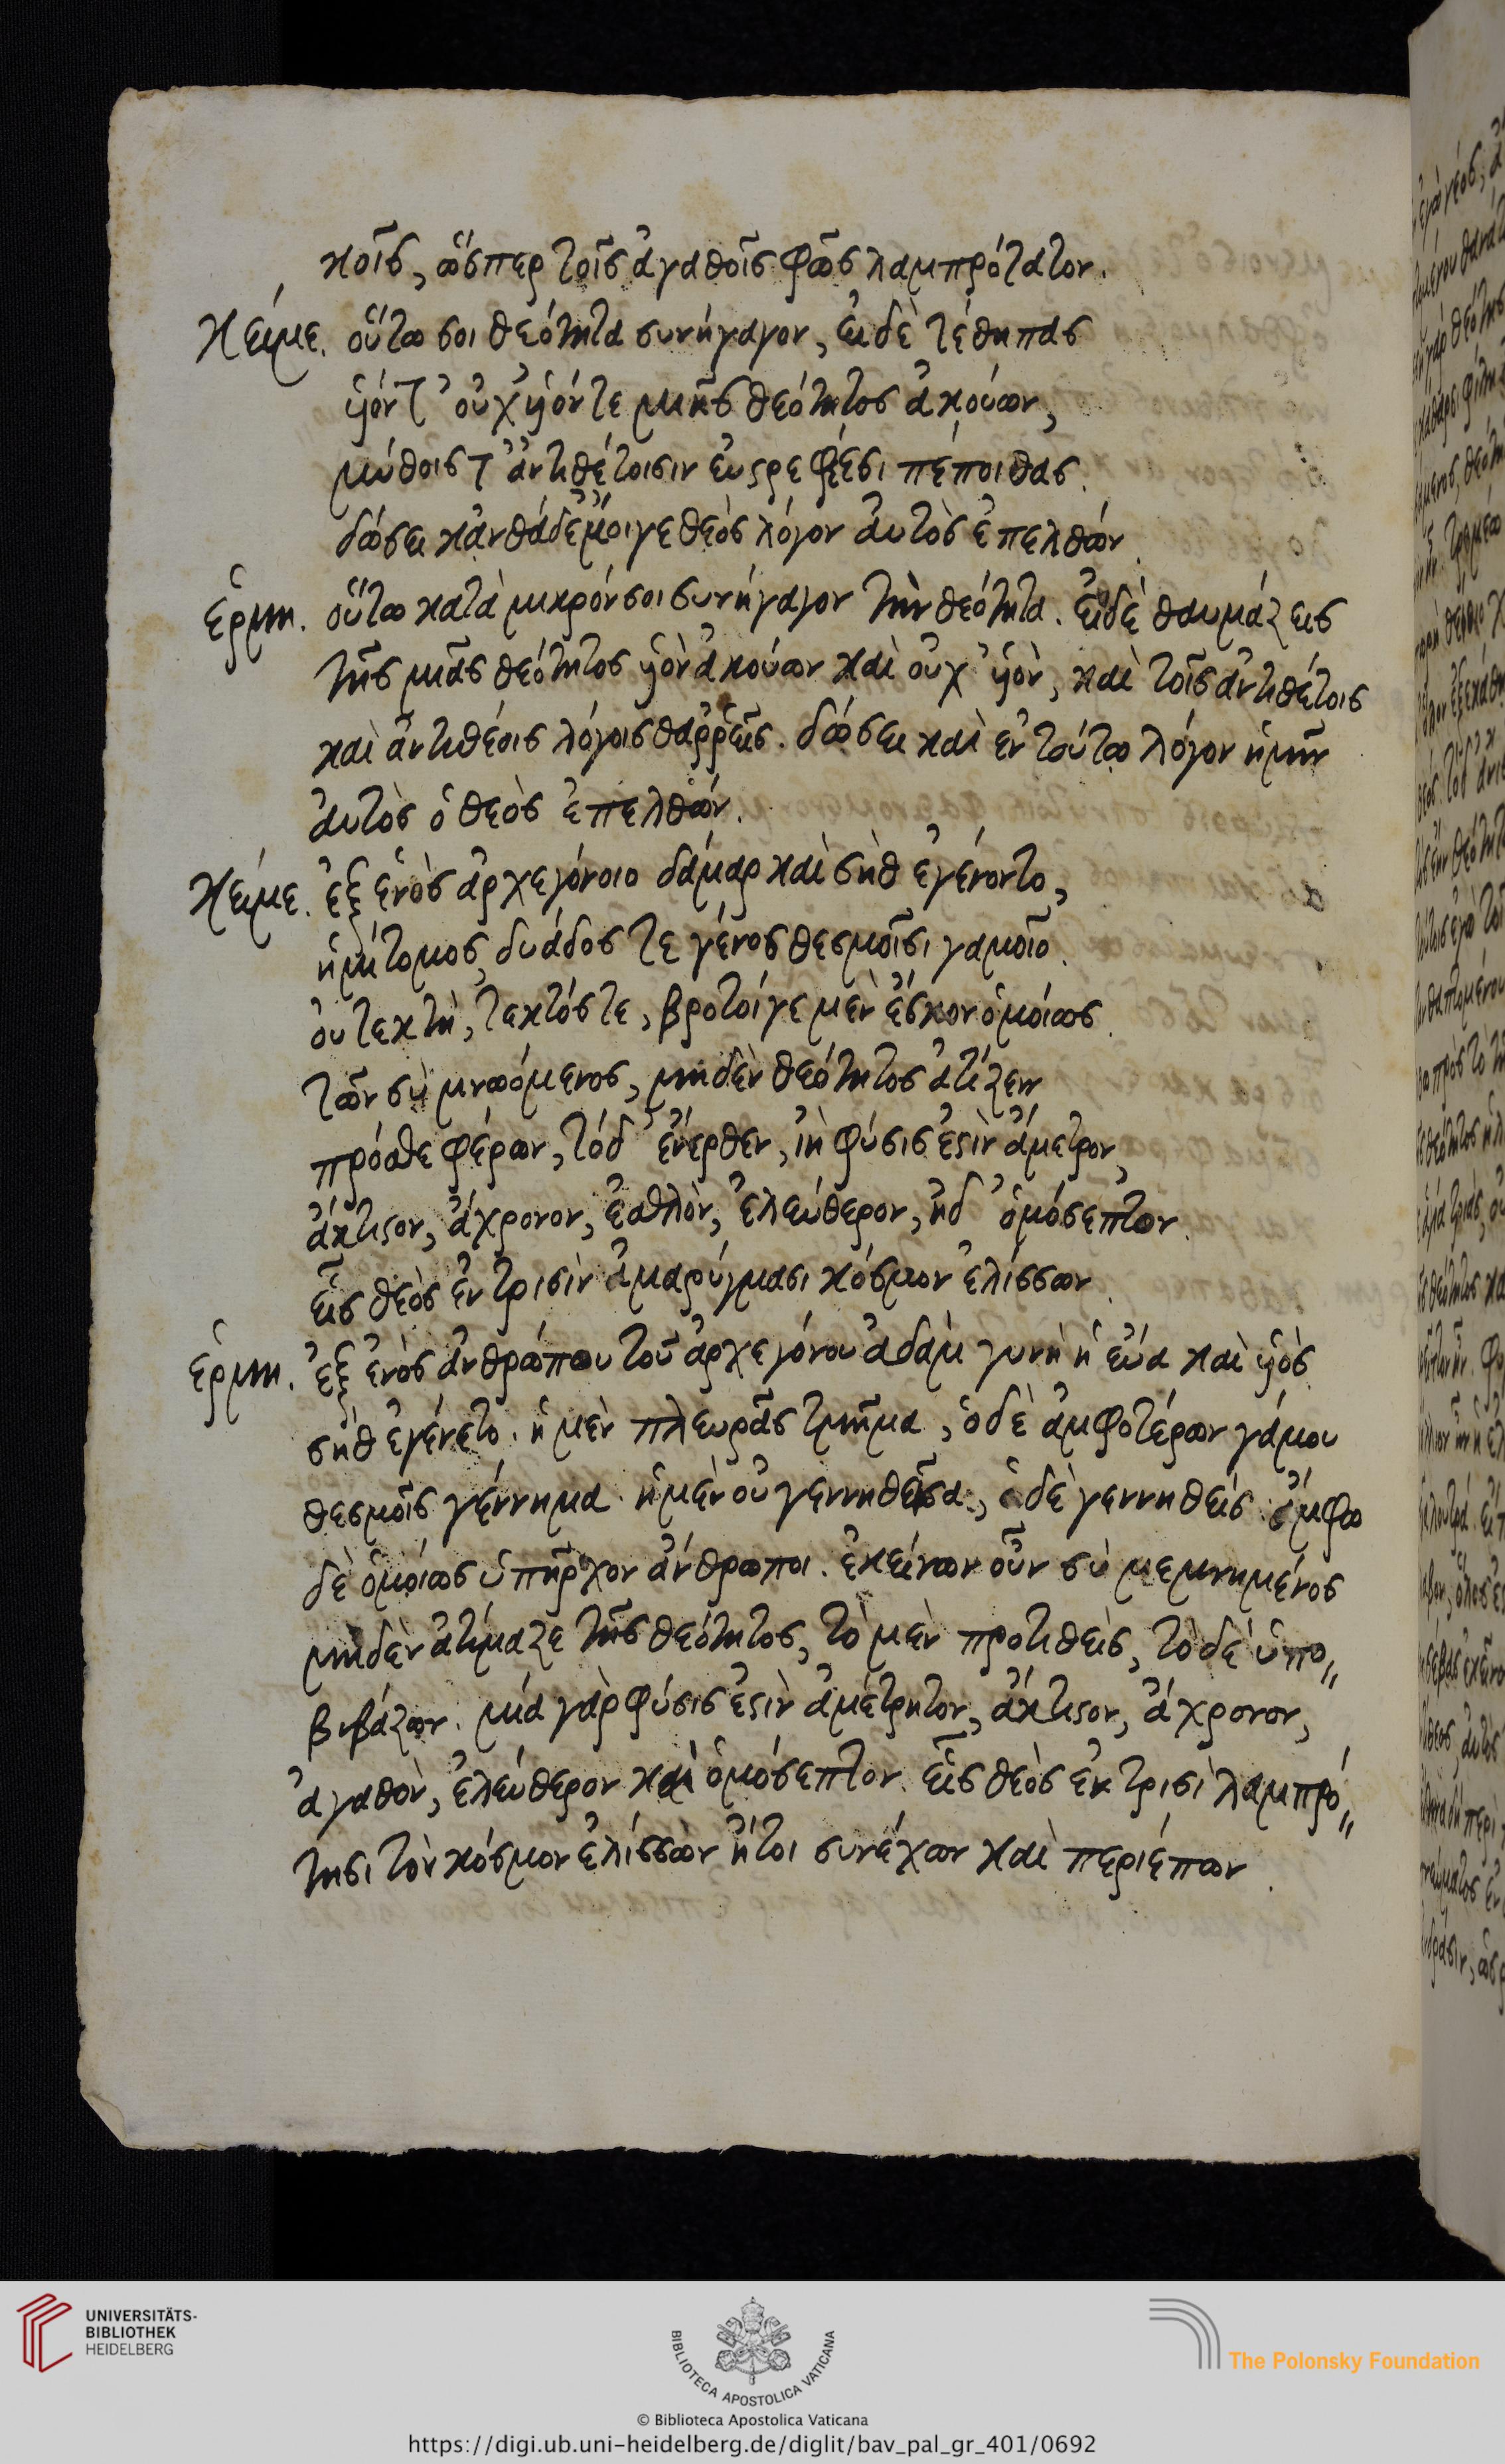 κοῖς, ὥσπερ τοῖς ἀγαθοῖς φῶς λαμπρότατον.
Κείμε. οὕτω σοι θεότητα συνήγαγον, εἰ δὲ τέθηπας
υἱόν τ' οὐχ υἱόν τε μιῆς θεότητος ἀκούων,
μύθοις τ' ἀντιθέτοισιν ἐυστρεφέεσι πέποιθας.
δώσει κἀνθάδε μοι γε θεὸς λόγον αὐτὸς ἐπελθών.
ἑρμη. οὕτω κατὰ μικρόν σοι συνήγαγον τὴν θεότητα. εἰ δὲ θαυμάζεις
τῆς μιᾶς θεότητος υἱὸν ἀκούων καὶ οὐχ' υἱὸν, καὶ τοῖς ἀντιθέτοις
καὶ ἀντιθέοις λόγοις θαῤῥεῖς. δώσει καὶ ἐν τούτω λόγον ἡμῖν
αὐτὸς ὁ θεὸς ἐπελθών.
Κείμε. ἐξ ἑνὸς ἀρχεγόνοιο δάμαρ καὶ σὴθ ἐγένοντο,
ἡμίτομος, δυάδος τε γένος θεσμοῖσι γαμοῖο.
οὐ τεκτὴ, τεκτός τε, βροτοί γε μὲν ἔσκον ὁμοίως.
τῶν σὺ μνωόμενος, μηδὲν θεότητος ἀτίζειν
πρόσθε φέρων, τόδ' ἔνερθεν, ἰὴ φύσις ἐστὶν ἄμετρον,
ἄκτιστον, ἄχρονον, ἐσθλὸν, ἐλεύθερον, ἠδ' ὁμόσεπτον.
εἷς θεὸς ἐν τρισὶν ἀμαρύγμασι κόσμον ἑλίσσων.
ἑρμη. ἐξ ἑνὸς ἀνθρώπου τοῦ ἀρχεγόνου ἀδὰμ γυνὴ ἡ εὔα καὶ υἱὸς
σὴθ ἐγένετο. ἡ μὲν πλευρᾶς τμῆμα, ὁ δὲ ἀμφοτέρων γάμου
θεσμοῖς γέννημα. ἡ μὲν οὐ γεννηθεῖσα, ὁ δὲ γεννηθείς. ἄμφω
δὲ ὁμοίως ὑπῆρχον ἄνθρωποι. ἐκείνων οὖν σὺ μεμνημένος
μηδὲν ἀτίμαζε τῆς θεότητος, τὸ μὲν προτιθεὶς, τὸ δὲ ὑπο"
βιβάζων. μία γὰρ φύσις ἐστὶν ἀμέτρητον, ἄκτιστον, ἄχρονον,
ἀγαθὸν, ἐλεύθερον καὶ ὁμόσεπτον. εἷς θεὸς ἐν τρισὶ λαμπρό"
τησι τὸν κόσμον ἑλίσσων ἤτοι συνέχων καὶ περιέπων.
UNIVERSITÄTS-
BIBLIOTHEK
HEIDELBERG
BIBLIOTECA APOSTOLICA VATICANA
The Polonsky Foundation
© Biblioteca Apostolica Vaticana
https://digi.ub.uni-heidelberg.de/diglit/bav_pal_gr_401/0692